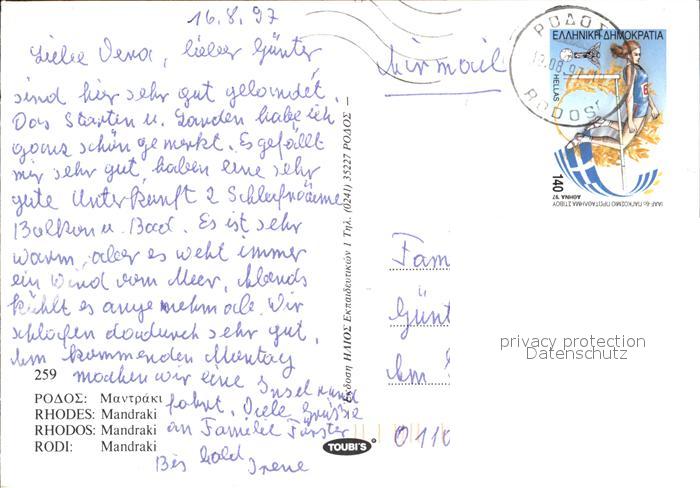 16.8.97
Liebe Vera, lieber Günter
sind hier sehr gut gelandet.
Das Starten u. Landen habe ich
ganz schön gemerkt. Es gefällt
mir sehr gut, haben eine sehr
gute Unterkunft 2 Schlafräume
Balkon u. Bad. Es ist sehr
warm, aber es weht immer
ein Wind vom Meer, Abends
kühlt es angenehm ab. Wir
schlafen dadurch sehr gut.
Am kommenden Montag
machen wir eine Inselrund
fahrt. Viele Grüsse
an Familie Förster
Bis bald Irene
259
ΡΟΔΟΣ: Μαντράκι
RHODES: Mandraki
RHODOS: Mandraki
RODI: Mandraki
TOUBI'S
Εκδοση ΗΛΙΟΣ Εκπαιδευτικών 1 Τηλ. (0241) 35227 ΡΟΔΟΣ
Airmail
ΕΛΛΗΝΙΚΗ ΔΗΜΟΚΡΑΤΙΑ
HELLAS
140
ΑΘΗΝΑ '97
IAAF 6ο ΠΑΓΚΟΣΜΙΟ ΠΡΩΤΑΘΛΗΜΑ ΣΤΙΒΟΥ
ΡΟΔΟΣ
18.08.97
RODOS
Fam
Günt
Am
0110
privacy protection
Datenschutz